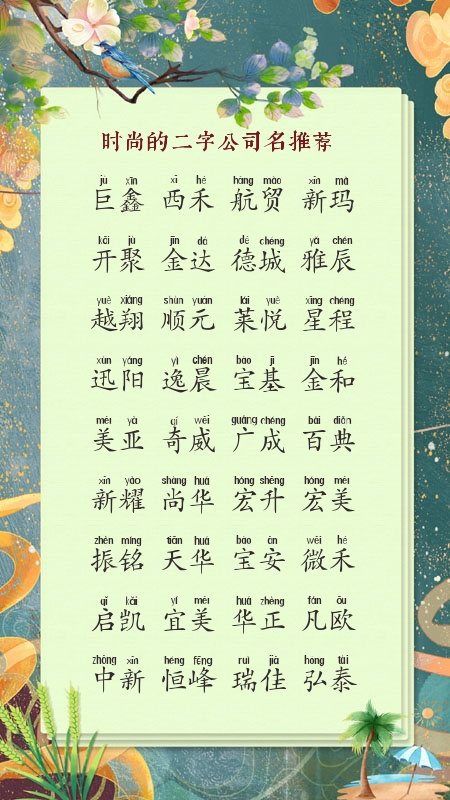 时尚的二字公司名推荐
jù xīn xī hé háng mào xīn mǎ
巨鑫 西禾 航贸 新玛
kāi jù jīn dá dé chéng yǎ chén
开聚 金达 德城 雅辰
yuè xiáng shùn yuán lái yuè xīng chéng
越翔 顺元 莱悦 星程
xùn yáng yì chén bǎo jī jīn hé
迅阳 逸晨 宝基 金和
měi yà qí wēi guǎng chéng bǎi diǎn
美亚 奇威 广成 百典
xīn yào shàng huá hóng shēng hóng měi
新耀 尚华 宏升 宏美
zhèn míng tiān huá bǎo ān wēi hé
振铭 天华 宝安 微禾
qǐ kǎi yí měi huá zhèng fán ōu
启凯 宜美 华正 凡欧
zhōng xīn héng fēng ruì jiā hong tài
中新 恒峰 瑞佳 弘泰